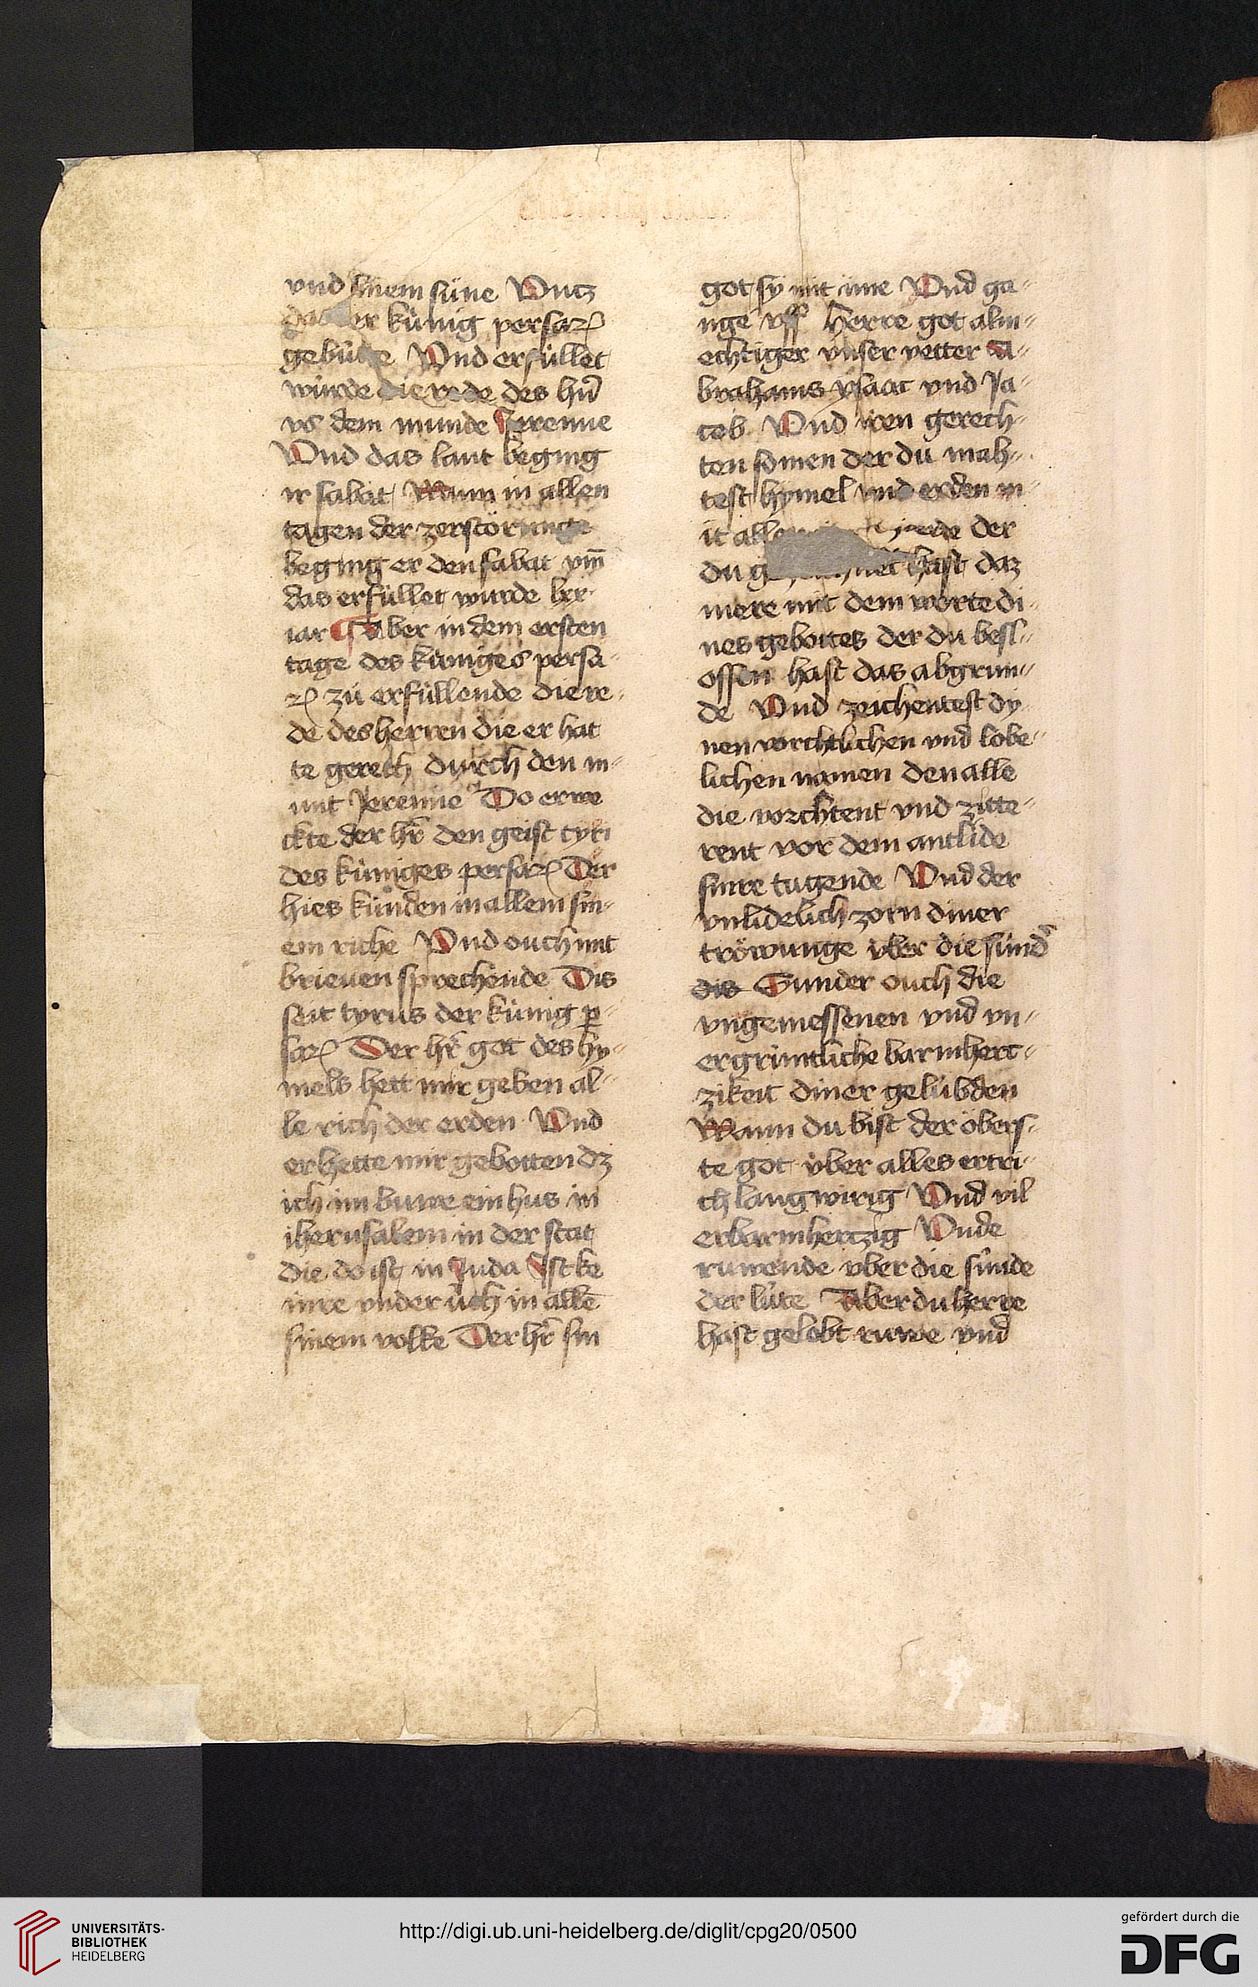 vnd sinem süne Vntz
der künig persarꝝ
gebütte Vnd erfüllet
würde die rede des hr̄n
vs dem munde Jeremie
Vnd das lant beging
ir sabat Wann in allen
tagen der zerstörunge
beging er den sabat vnn̄
das erfüllet wurde lxx.
iar ¶ Aber in dem ersten
tage des küniges persa-
rꝝ zü erfüllende die re-
de des herren die er hat
te gereth durch den m-
unt Jeremie Do erwe
ckte der hr̄ den geist cyri
des küniges persarꝝ Der
hies künden in allem sin-
em riche Vnd ouch mit
brieuen sprechende Dis
seit cyrus der künig per-
sarꝝ Der hr̄ got des hy-
mels hett mir geben al-
le rich der erden Vnd
er hette mir gebotten dz
ich im buwe ein hus in
iherusalem in der stat
die do ist in Juda Ist ke
inre vnder üch in allē
sinem volke Der hr̄ sin
got sy mit ime Vnd ga-
nge vff Herre got alm-
echtiger vnser vetter A-
brahams ysaac vnd Ja-
cob Vnd iren gerech-
ten somen der du mah-
test hymel vnd erden m-
it aller der
du hast daz
mere mit dem worte di-
nes gebottes der du besl-
ossen hast das abgrun-
de Vnd zeichentest dy
nen vorchtlichen vnd lobe-
lichen namen den alle
die vorchtent vnd zitte-
rent vor dem antlide
sinre tugende Vnd der
vnlidelich zorn diner
tröwunge über die sünd
die Sunder ouch die
vngemessenen vnd vn-
ergrüntliche barmhert-
zikeit diner gelübden
Wann du bist der öbers-
te got über alles ertri-
ch langwirig Vnd vil
erbarmhertzig Vnde
ruwende vber die sünde
der lüte Aber du herre
hast gelobt ruwe vnd
UNIVERSITÄTS-
BIBLIOTHEK
HEIDELBERG
http://digi.ub.uni-heidelberg.de/diglit/cpg20/0500
gefördert durch die
DFG